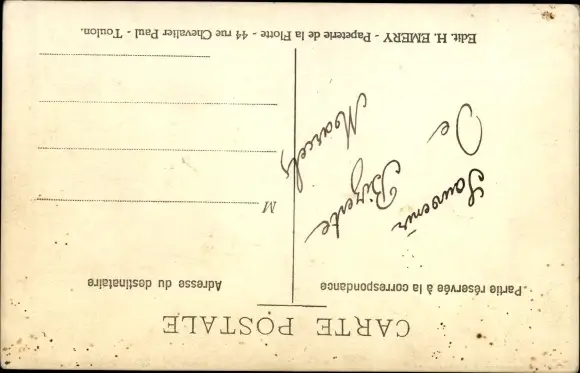 CARTE POSTALE
Partie réservée à la correspondance
Adresse du destinataire
Souvenir
De
Bizerte
Marcel
M
Edit. H. EMERY - Papeterie de la Flotte - 44 rue Chevalier Paul - Toulon.